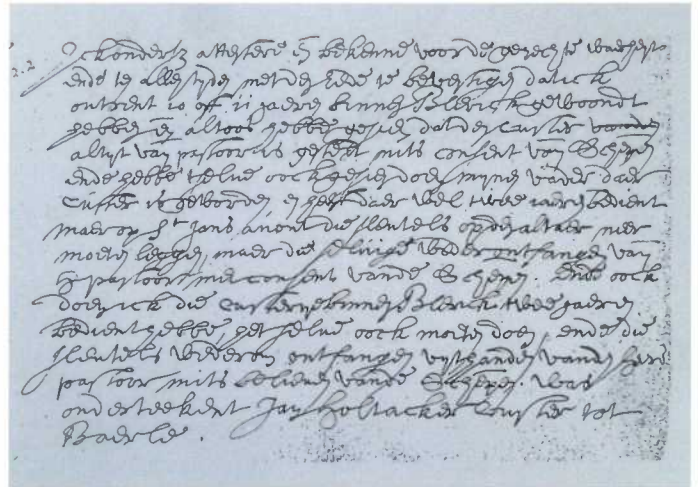 2.2
Ick onders: attestere en bekenne voor de gerechte waerheyt
ende te allentyden met den eede te bevestigen dat ick
ontrent 10 off 11 jaeren binnen Blerick gewoondt
hebbe en altoos hebbe gesien dat den custer vanden
altyt van pastoor is gestelt mits consent van Schepen
ende hebbe selve oock gesien doen mynen vader daer
Custer is geworden en heeft daer wel twee jaeren bedient
maer op St Jans avont die sleutels op den altaer neer
moeten leggen, maer die selvige weder ontfangen van
pastoor met consent vande Schepen. Ende oock
doen ick die custerye binnen Blerick twee jaeren
bedient hebbe het selve oock moeten doen, ende die
sleutels wederom ontfangen uyt handen vanden heer
pastoor mits believen vande Schepen. Was
onderteekent Jan Holtacker Custer tot
Baerle.